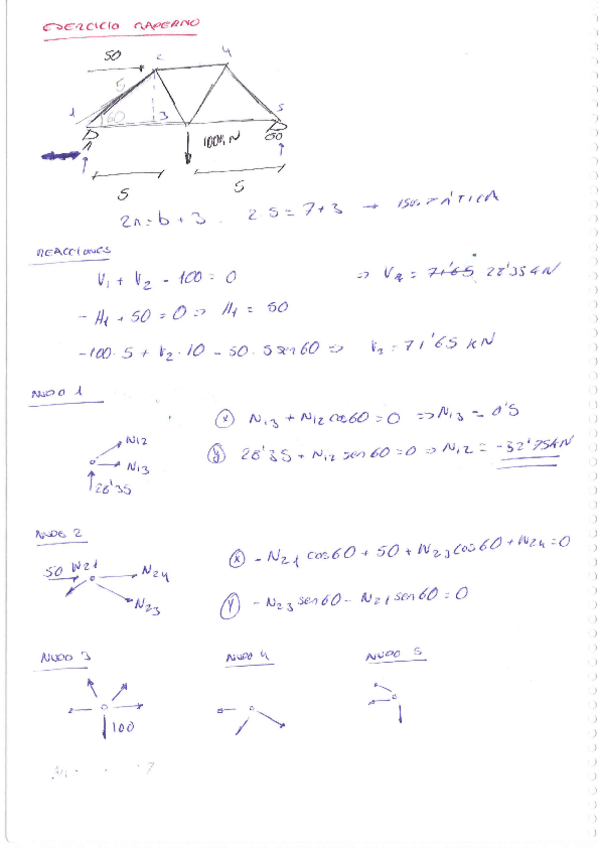 EJERCICIO CUADERNO
50
2
4
5
1
60
3
5
100kN
5
5
2n = b + 3. 2·5 = 7 + 3 → ISOSTÁTICA
REACCIONES
V1 + V2 - 100 = 0 ⇒ V1 = 71'65 28'35 kN
- H1 + 50 = 0 ⇒ H1 = 50
-100·5 + V2·10 - 50·5 sen60 ⇒ V2 = 71'65 kN
NUDO 1
N12
N13
28'35
(x) N13 + N12 cos60 = 0 ⇒ N13 = 0'5
(y) 28'35 + N12 sen60 = 0 ⇒ N12 = -32'75kN
NUDO 2
50 N21
N24
N23
(x) - N21 cos60 + 50 + N23 cos60 + N24 = 0
(y) - N23 sen60 - N21 sen60 = 0
NUDO 3
NUDO 4
NUDO 5
100